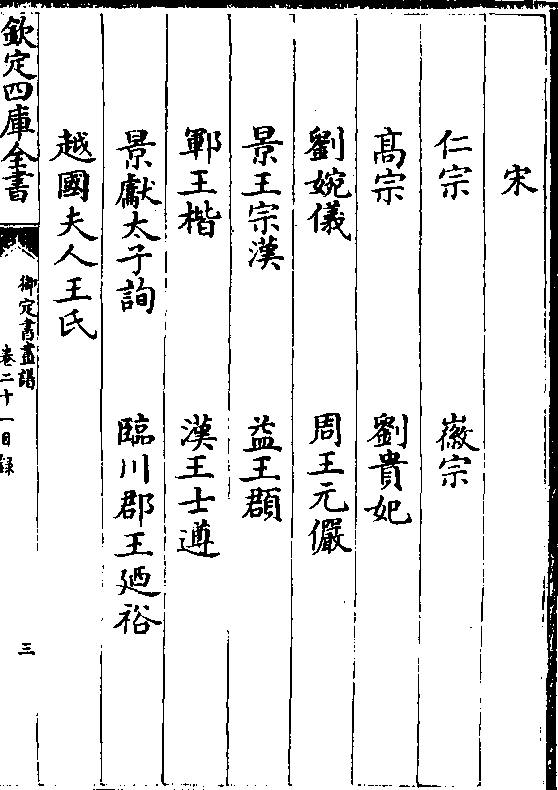 宋
仁宗 徽宗
高宗 劉貴妃
劉婉儀 周王元儼
景王宗漢 益王頵
鄆王楷 漢王士遵
景獻太子詢 臨川郡王廼裕
越國夫人王氏
欽定四庫全書
御定書畫譜
卷二十一目錄
三